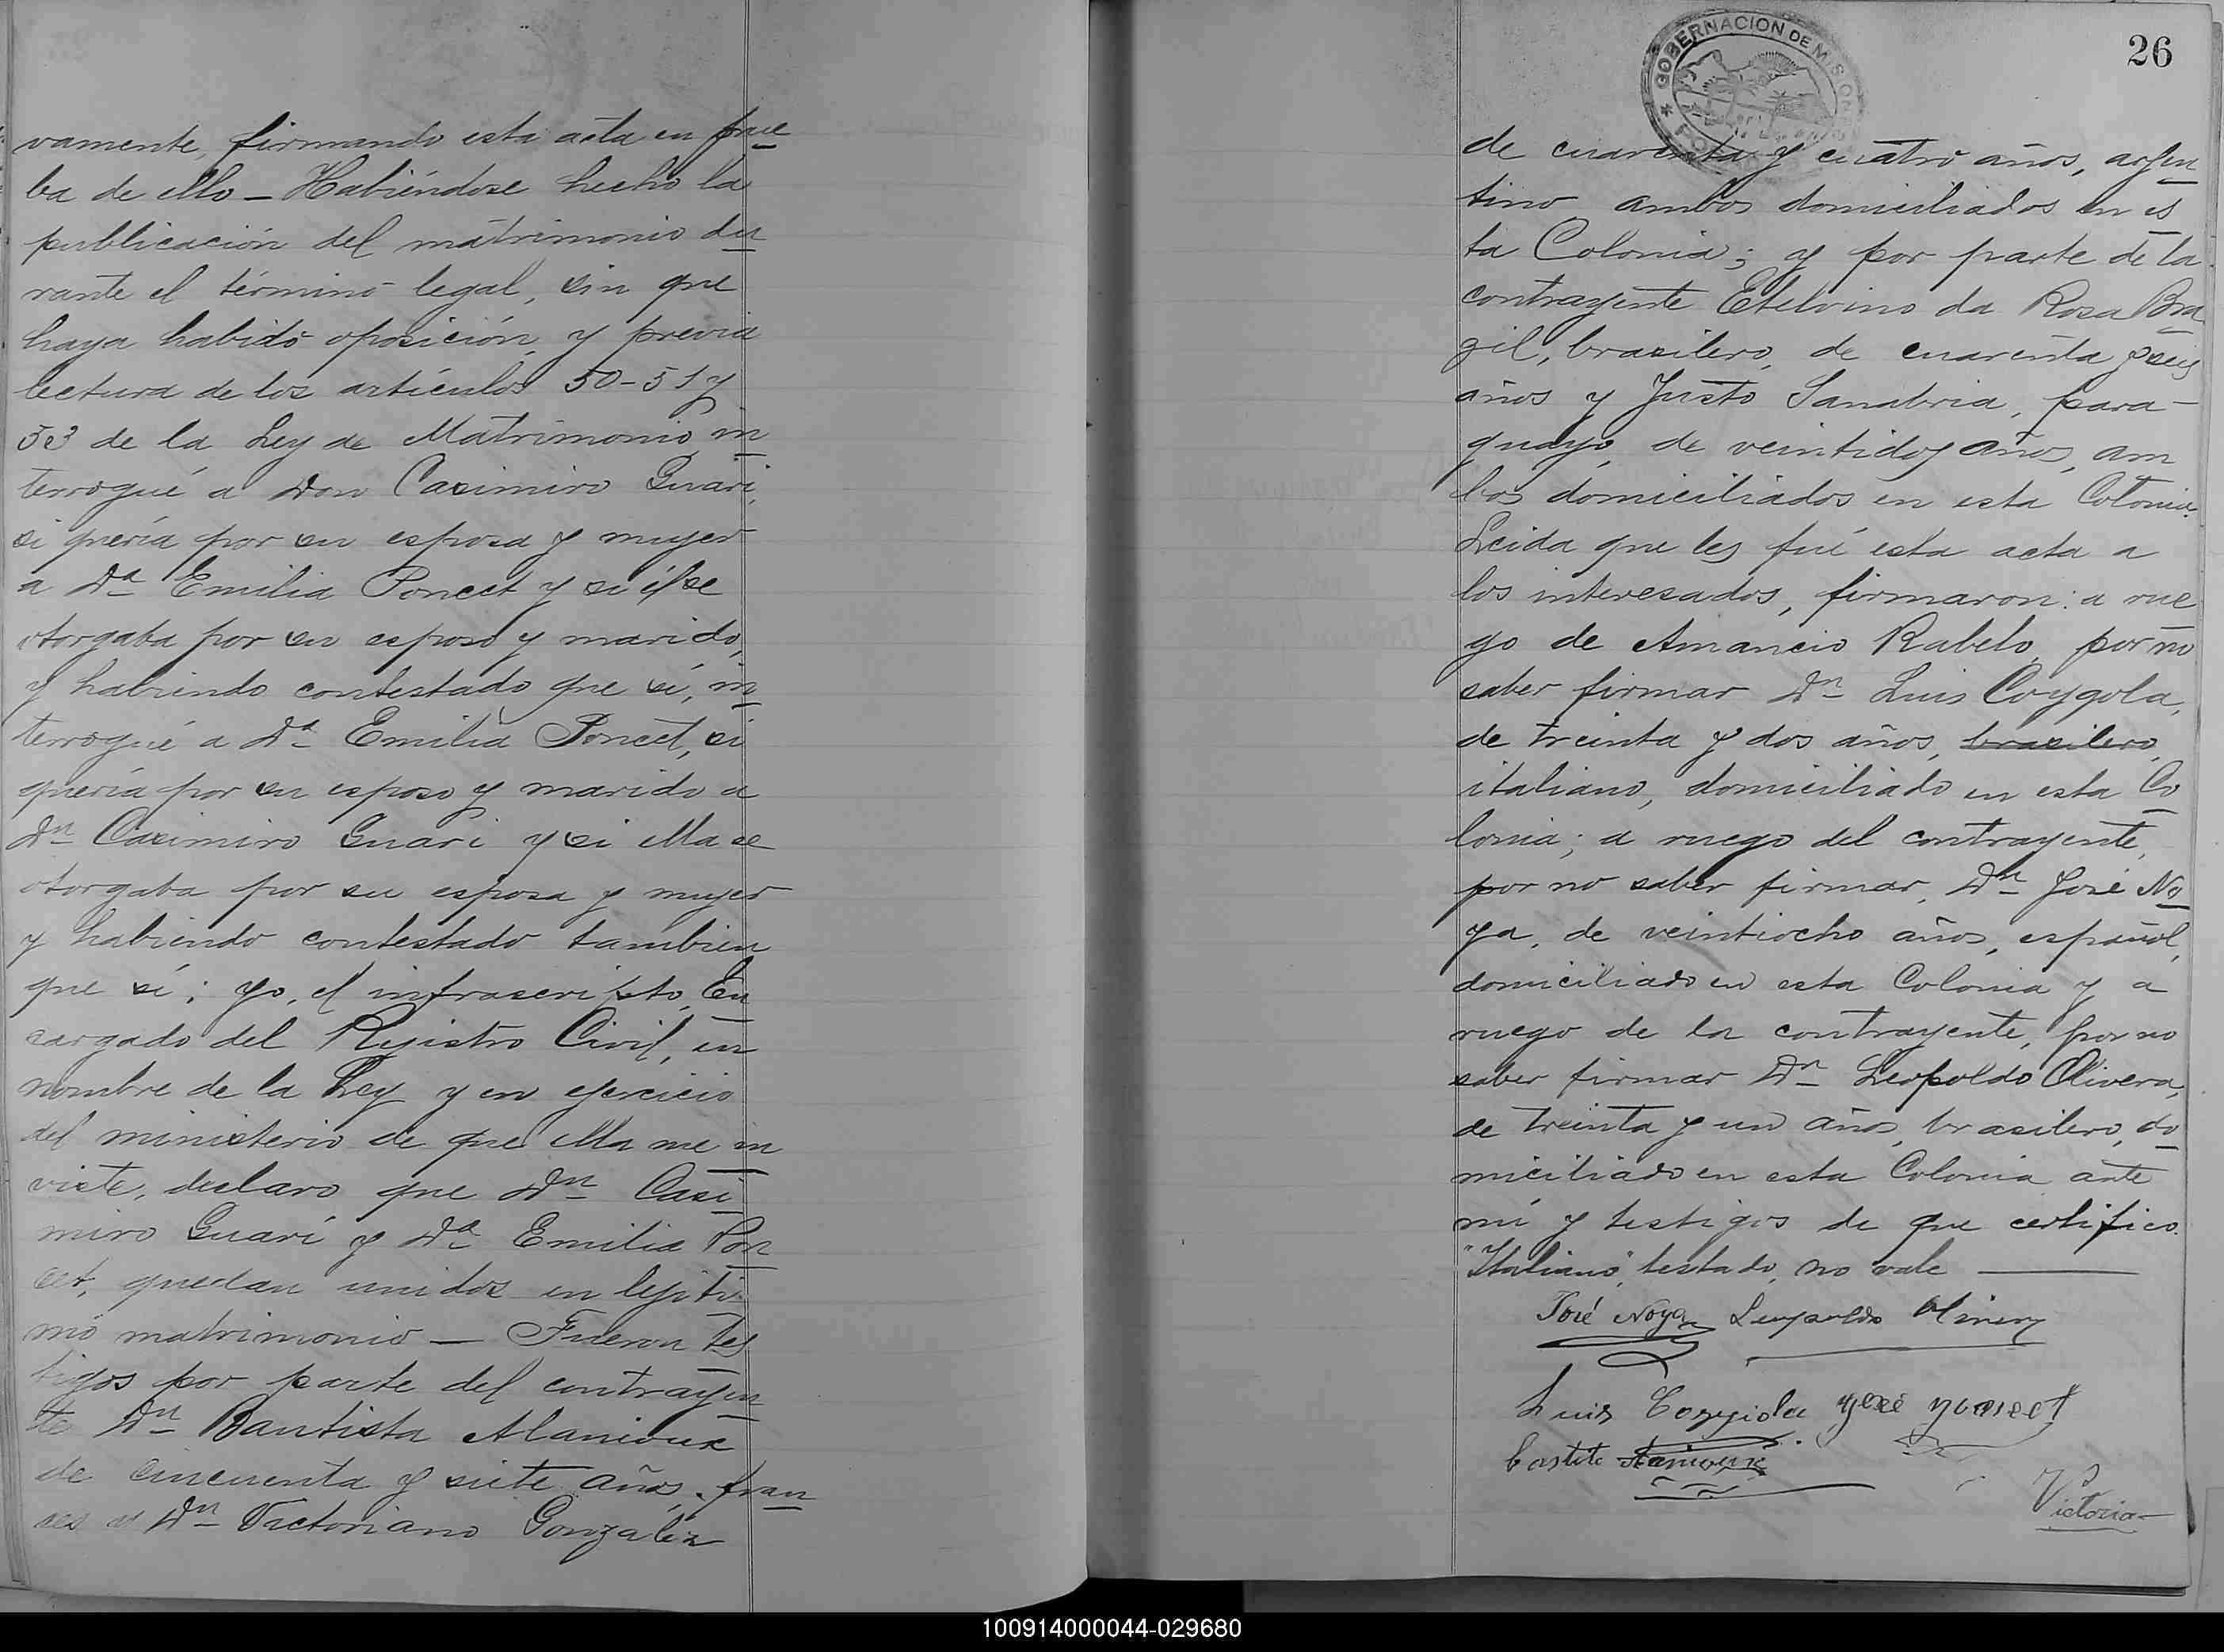 vamente, firmando esta acta en prue
ba de ello - Habiéndose hecho la
publicación del matrimonio du
rante el término legal, sin que
haya habido oposición, y previa
lectura de los artículos 50-51 y
53 de la Ley de Matrimonio, in
terrogué a Don Casimiro Guari,
si quería por su esposa y mujer
a Da Emilia Poncet y si él se
otorgaba por su esposo y marido,
y habiendo contestado que sí, in
terrogué a Da Emilia Poncet, si
quería por su esposo y marido a
Dn Casimiro Guari y si ella se
otorgaba por su esposa y mujer
y habiendo contestado tambien
que sí; yo, el infrascripto, En
cargado del Rejistro Civil, en
nombre de la Ley y en ejercicio
del ministerio de que ella me in
viste, declaro que Dn Casi
miro Guarí y Da Emilia Pon
cet, quedan unidos en lejíti
mo matrimonio - Fueron tes
tigos por parte del contrayen
te Dn Bautista Alanioux
de cincuenta y siete años, fran
ces y Dn Victoriano Gonzalez
GOBERNACION DE MISIONES
26
de cuarenta y cuatro años, argen
tino ambos domiciliados en es
ta Colonia; y por parte de la
contrayente Etelvino da Rosa Bra
zil, brasilero, de cuarenta y seis
años y Justo Sanabria, para-
guayo, de veintidos años, am
bos domiciliados en esta Colonia.
Leida que les fué esta acta a
los interesados, firmaron: a rue
go de Amancio Rabelo, por no
saber firmar Dn Luis Coygola,
de treinta y dos años, brasilero,
italiano, domiciliado en esta Co
lonia; a ruego del contrayente,
por no saber firmar, Dn José No
ya, de veintiocho años, español,
domiciliado en esta Colonia y a
ruego de la contrayente, por no
saber firmar Dn Leopoldo Olivera,
de treinta y un años, brasilero, do
miciliado en esta Colonia ante
mí y testigos de que certifico.
"Italiano", testado, no vale
José Noya Leopoldo Oliver
Luis José
Victoria
100914000044-029680